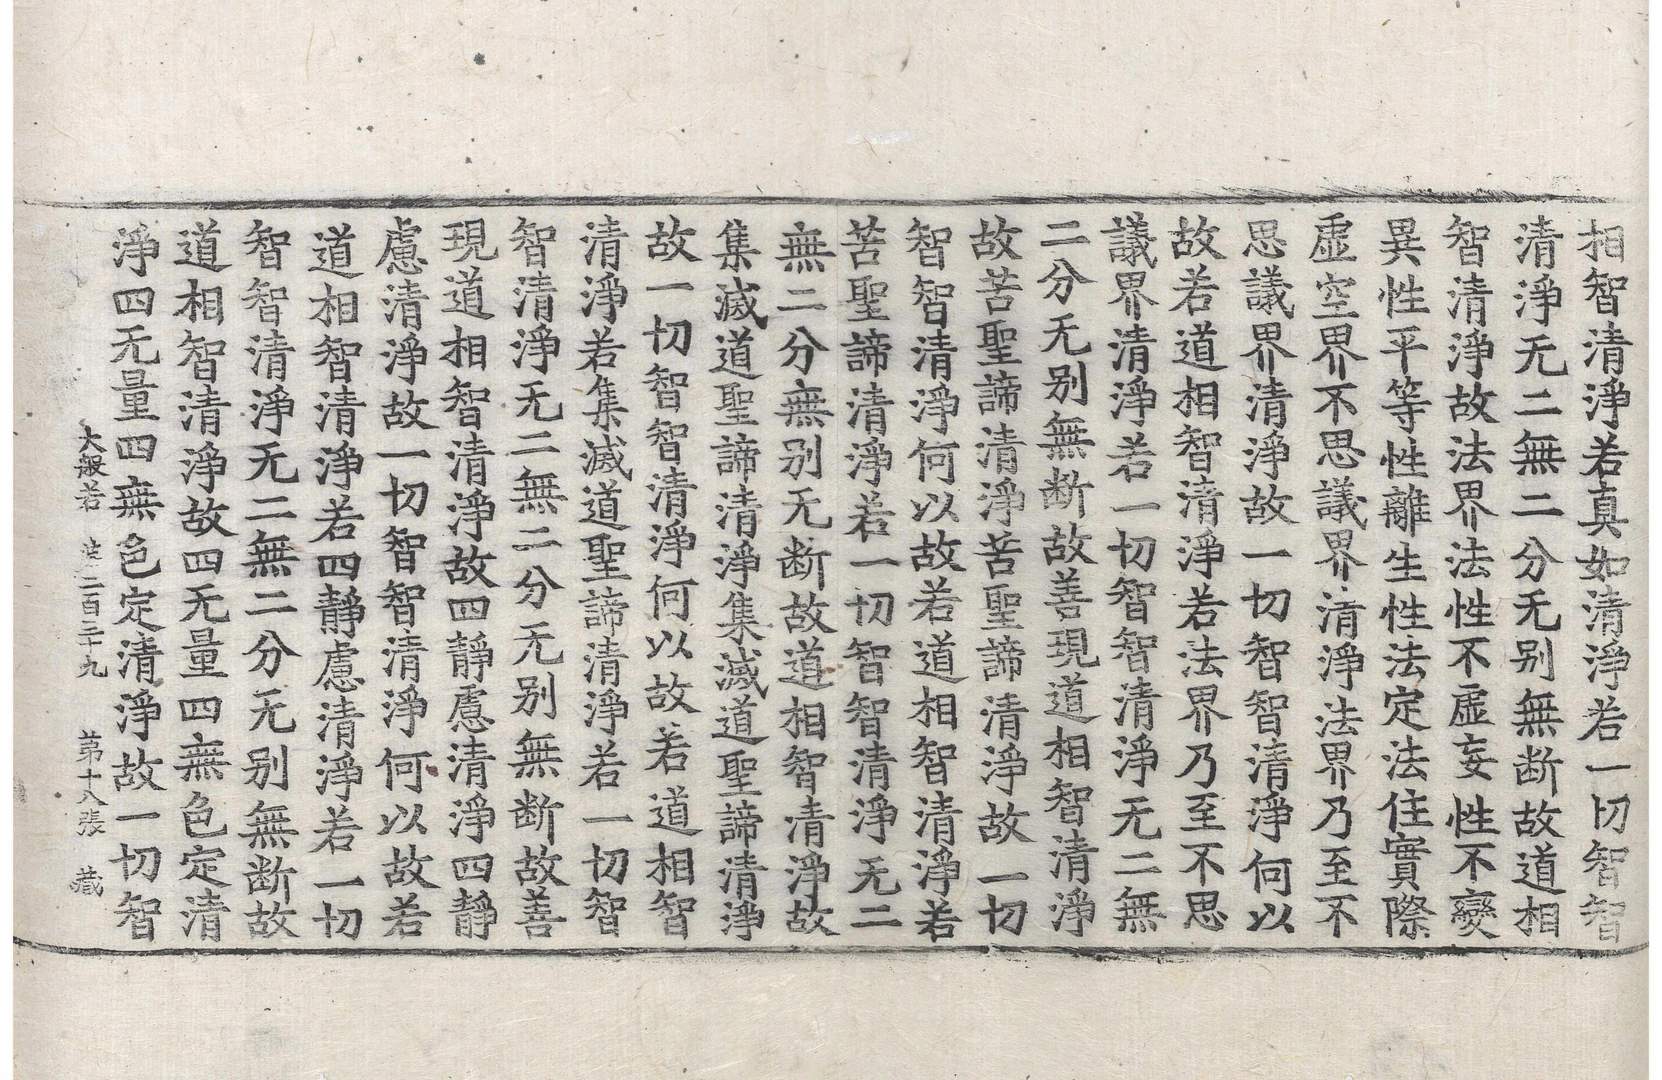 相智清淨若真如清淨若一切智智
清淨无二無二分无别無断故道相
智清淨故法界法性不虛妄性不變
異性平等性離生性法定法住實際
虛空界不思議界清淨法界乃至不
思議界清淨故一切智智清淨何以
故若道相智清淨若法界乃至不思
議界清淨若一切智智清淨无二無
二分无别無断故善現道相智清淨
故苦聖諦清淨苦聖諦清淨故一切
智智清淨何以故若道相智清淨若
苦聖諦清淨若一切智智清淨无二
無二分無别无断故道相智清淨故
集滅道聖諦清淨集滅道聖諦清淨
故一切智智清淨何以故若道相智
清淨若集滅道聖諦清淨若一切智
智清淨无二無二分无别無断故善
現道相智清淨故四靜慮清淨四靜
慮清淨故一切智智清淨何以故若
道相智清淨若四靜慮清淨若一切
智智清淨无二無二分无别無断故
道相智清淨故四无量四無色定清
淨四无量四無色定清淨故一切智
大般若 二百三十九 苐十八張 藏